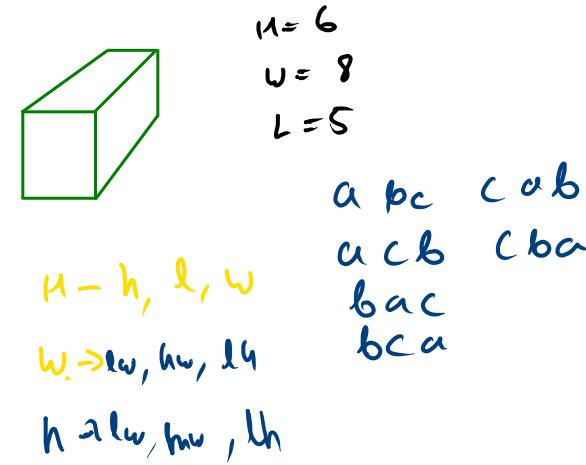 H = 6
W = 8
L = 5
a bc c a b
a c b c b a
b a c
b c a
H - h, l, w
W. → lw, hw, lh
h → lw, hw, lh